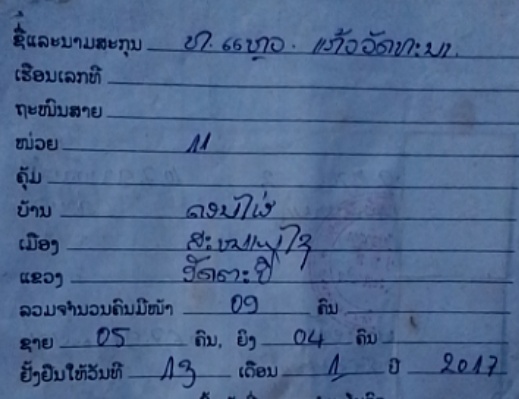 ຊື່ແລະນາມສະກຸນ ທ. ແຫຼວ. ແກ້ວວັດທະນາ.
ເຮືອນເລກທີ
ຖະໜົນສາຍ
ໜ່ວຍ 11
ຄຸ້ມ
ບ້ານ
ເມືອງ ສະໝາມໄຊ
ແຂວງ ອັດຕະປື
ລວມຈຳນວນຄົນມີໜ້າ 09 ຄົນ
ຊາຍ 05 ຄົນ, ຍິງ 04 ຄົນ
ຢັ້ງຢືນໃຫ້ວັນທີ 13 ເດືອນ 1 ປີ 2017